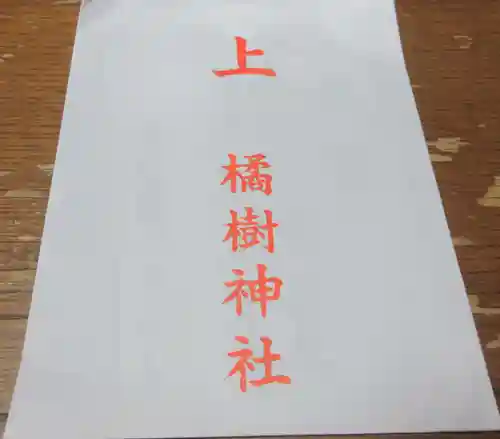 上 橘樹神社